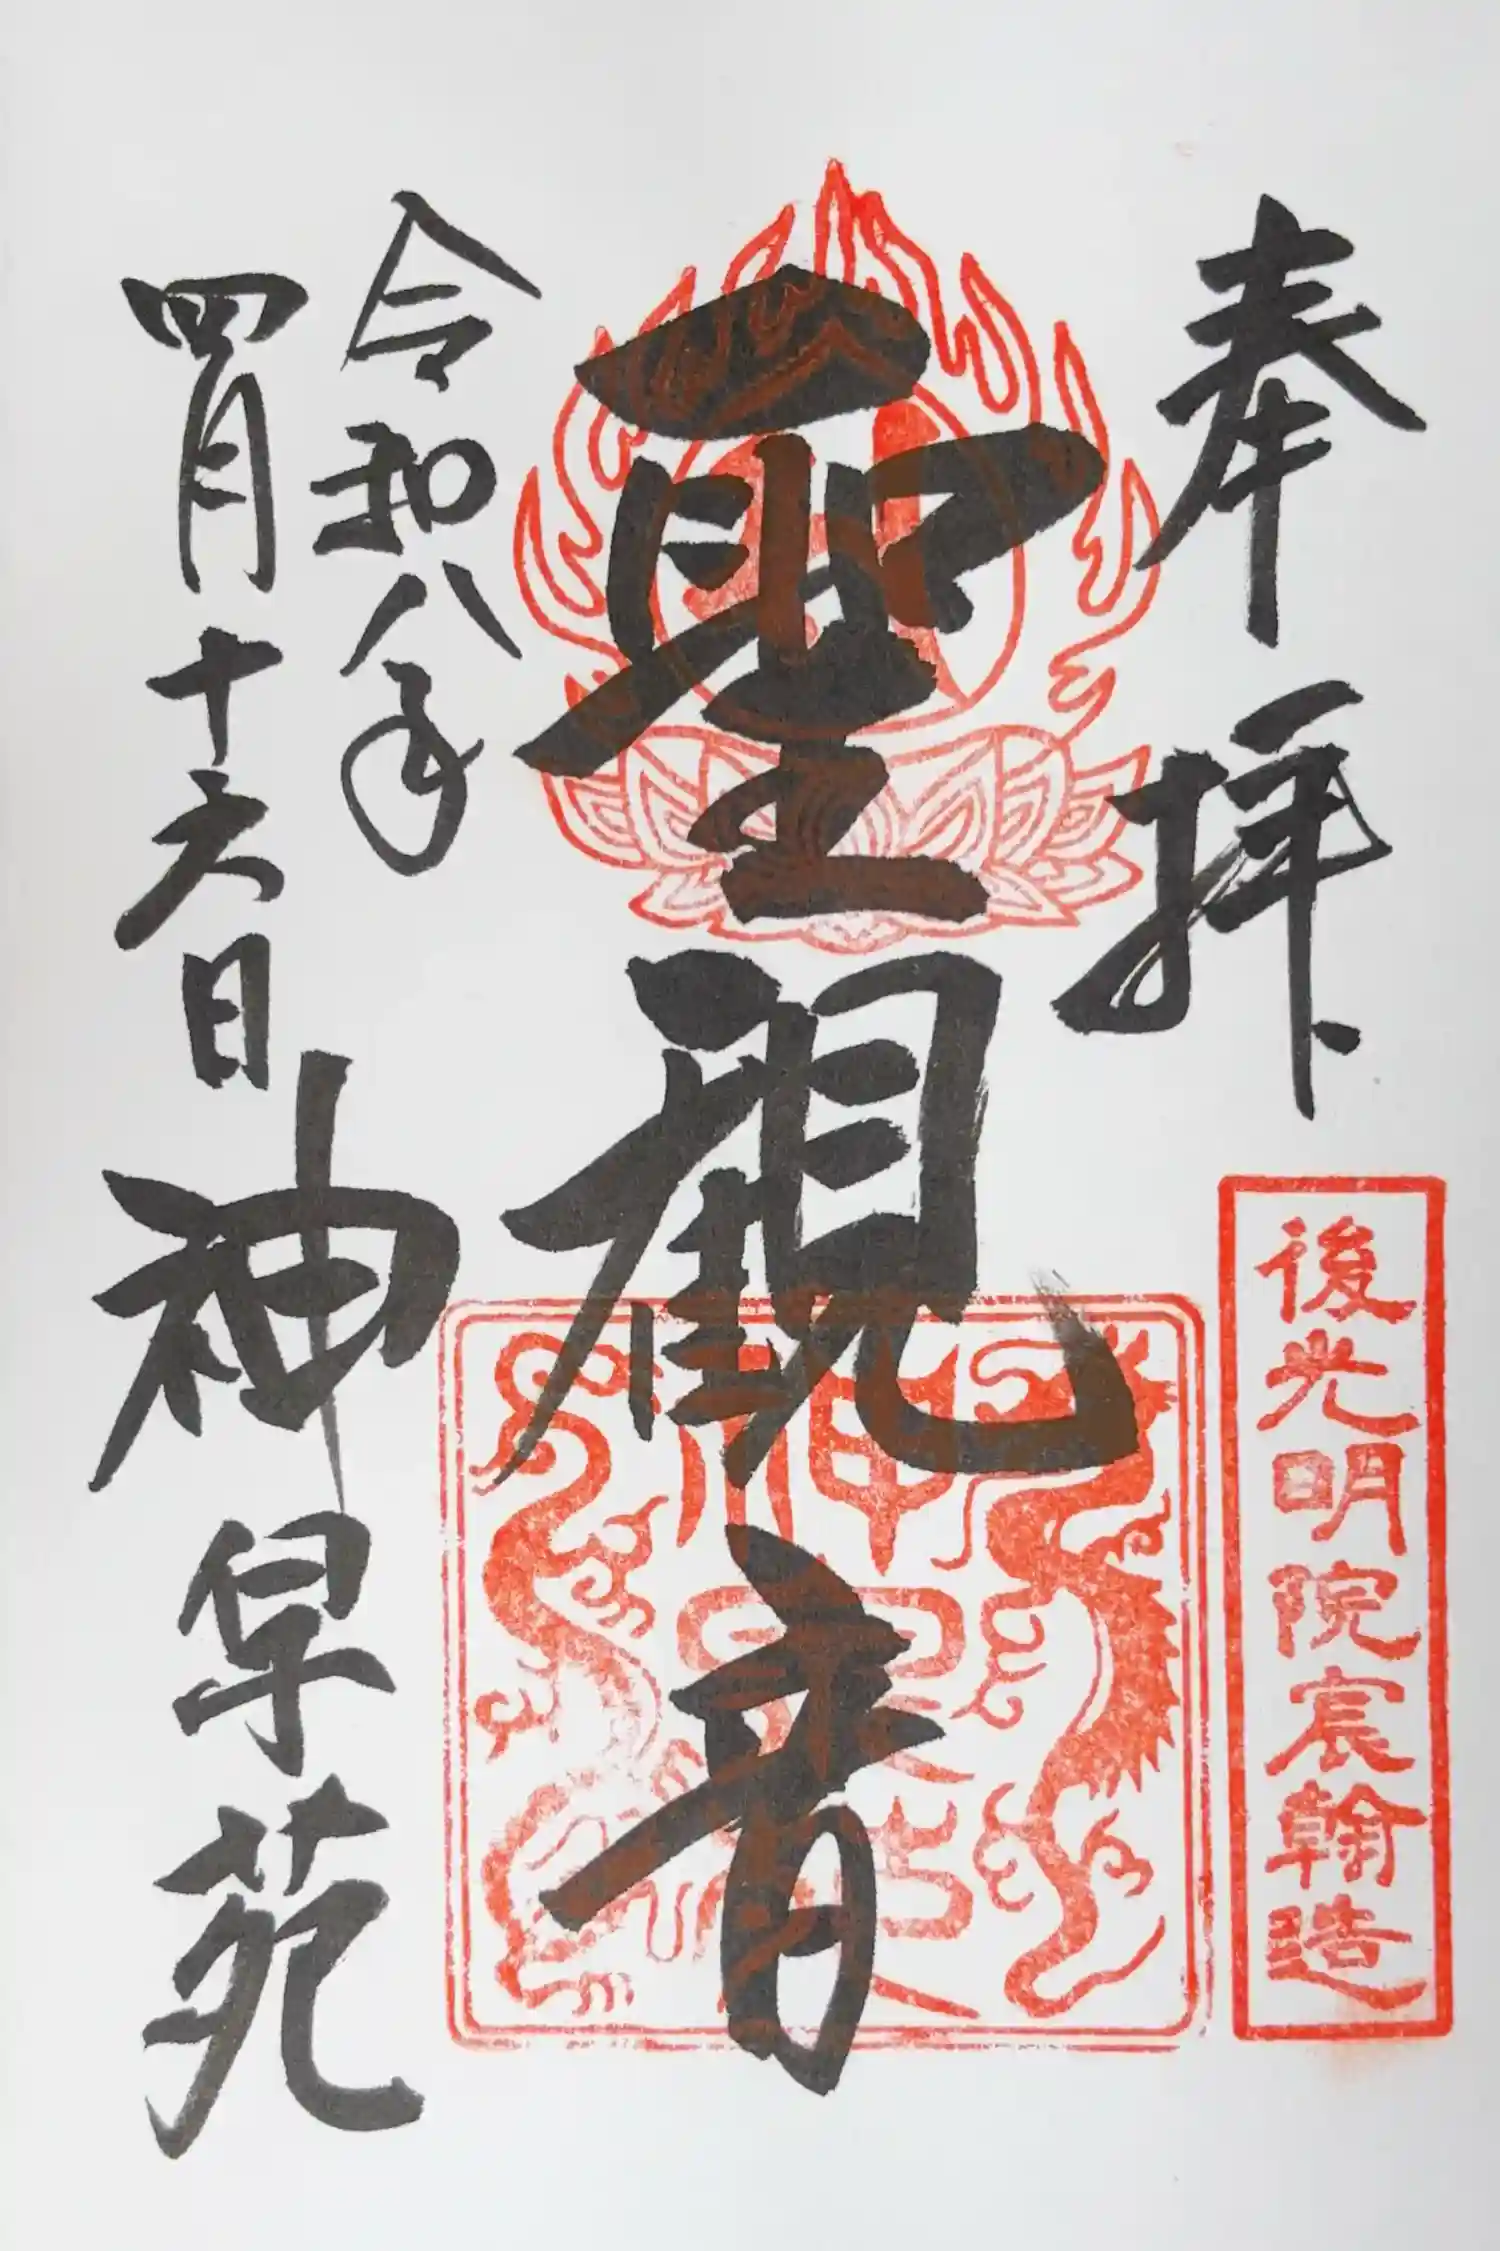 奉拝
後光明院宸翰造
聖観音
令和八年
四月十六日
神泉苑